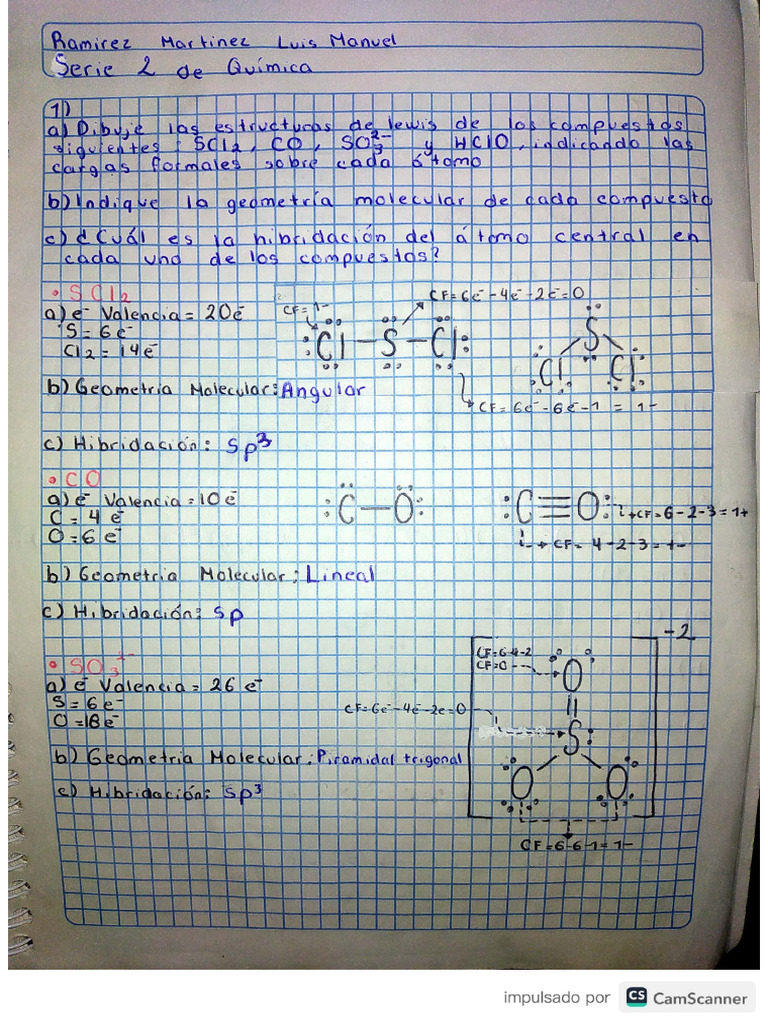 Ramirez Martinez Luis Manuel
Serie 2 de Química
1)
a) Dibuje las estructuras de lewis de los compuestos
siguientes: SCl2, CO, SO3²⁻ y HClO, indicando las
cargas formales sobre cada átomo
b) Indique la geometría molecular de cada compuesto
c) ¿Cuál es la hibridación del átomo central en
cada uno de los compuestos?
• SCl2
a) e⁻ Valencia = 20e⁻
S = 6e⁻
Cl2 = 14e⁻
CF = 1-
CF = 6e⁻ - 4e⁻ - 2e⁻ = 0
Cl — S — Cl
S
Cl Cl
CF = 6e⁻ - 6e⁻ - 1 = 1-
b) Geometría Molecular: Angular
c) Hibridación: Sp³
• CO
a) e⁻ Valencia = 10e⁻
C = 4e⁻
O = 6e⁻
:C — O:
:C ≡ O:
CF = 6-2-3 = 1+
CF = 4-2-3 = 1-
b) Geometría Molecular: Lineal
c) Hibridación: Sp
• SO3²⁻
a) e⁻ Valencia = 26e⁻
S = 6e⁻
O = 18e⁻
-2
CF = 6-4-2
CF = 0
O
CF = 6e⁻ - 4e⁻ - 2e = 0
S:
O O
CF = 6-6-1 = 1-
b) Geometría Molecular: Piramidal trigonal
c) Hibridación: Sp³
impulsado por CS CamScanner